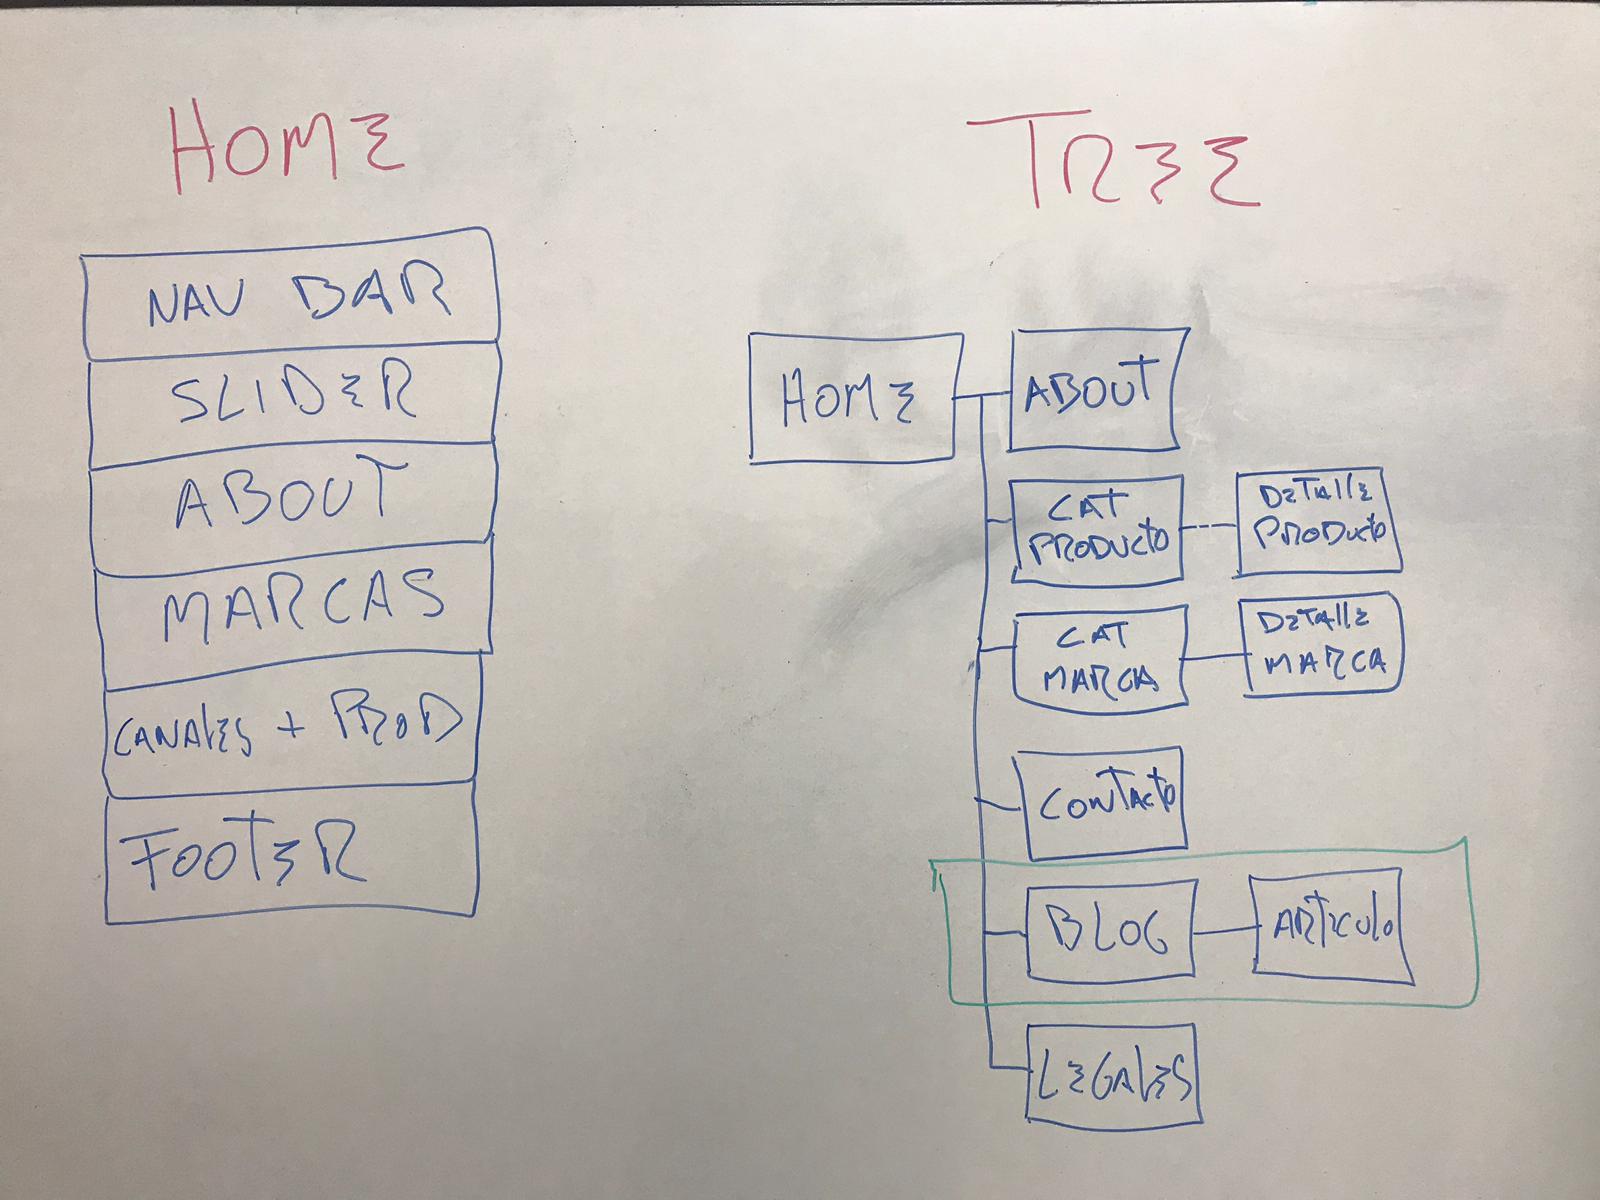 HOME
NAV BAR
SLIDER
ABOUT
MARCAS
CANALES + PROD
FOOTER
TREE
HOME
ABOUT
CAT
PRODUCTO
DETALLE
PRODUCTO
CAT
MARCA
DETALLE
MARCA
CONTACTO
BLOG
ARTICULO
LEGALES